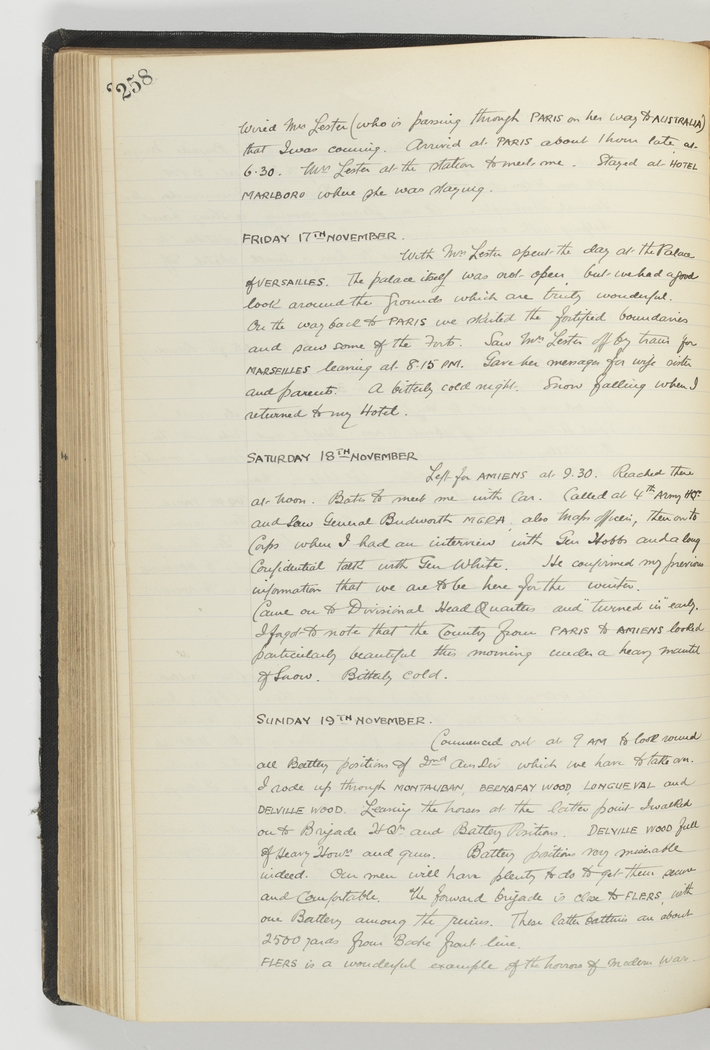 258
Wired Mrs Lester (who is passing through PARIS on her way to AUSTRALIA)
that I was coming. Arrived at PARIS about 1 hour late at
6.30. Mrs Lester at the station to meet me. Stayed at HOTEL
MARLBORO where she was staying.
FRIDAY 17TH NOVEMBER.
With Mrs Lester spent the day at the Palace
of VERSAILLES. The palace itself was not open but we had a good
look around the Grounds which are truly wonderful.
On the way back to PARIS we skirted the fortified boundaries
and saw some of the Forts. Saw Mrs Lester off by train for
MARSEILLES leaving at 8.15 PM. Gave her messages for wife sister
and parents. A bitterly cold night. Snow falling when I
returned to my Hotel.
SATURDAY 18TH NOVEMBER
Left for AMIENS at 9.30. Reached there
at noon. Bates to meet me with Car. Called at 4th Army HQrs
and saw General Budworth MGRA, also Maps officer, then on to
Corps when I had an interview with Gen Hobbs and a long
Confidential talk with Gen White. He confirmed my previous
information that we are to be here for the winter.
Came on to Divisional Head Quarters and "turned in" early.
I forgot to note that the Country from PARIS to AMIENS looked
particularly beautiful this morning under a heavy mantel
of Snow. Bitterly cold.
SUNDAY 19TH NOVEMBER.
Commenced out at 9 AM to look round
all Battery positions of 2nd Aus Div which we have to take on.
I rode up through MONTAUBAN, BERNAFAY WOOD, LONGUEVAL and
DELVILLE WOOD. Leaving the horses at the latter point I walked
on to Brigade HQrs and Battery Positions. DELVILLE WOOD full
of Heavy Howrs and guns. Battery positions very miserable
indeed. Our men will have plenty to do to get them secure
and Comfortable. The forward brigade is close to FLERS, with
one Battery among the ruins. These latter batteries are about
2500 yards from Boche front line.
FLERS is a wonderful example of the horrors of modern war.